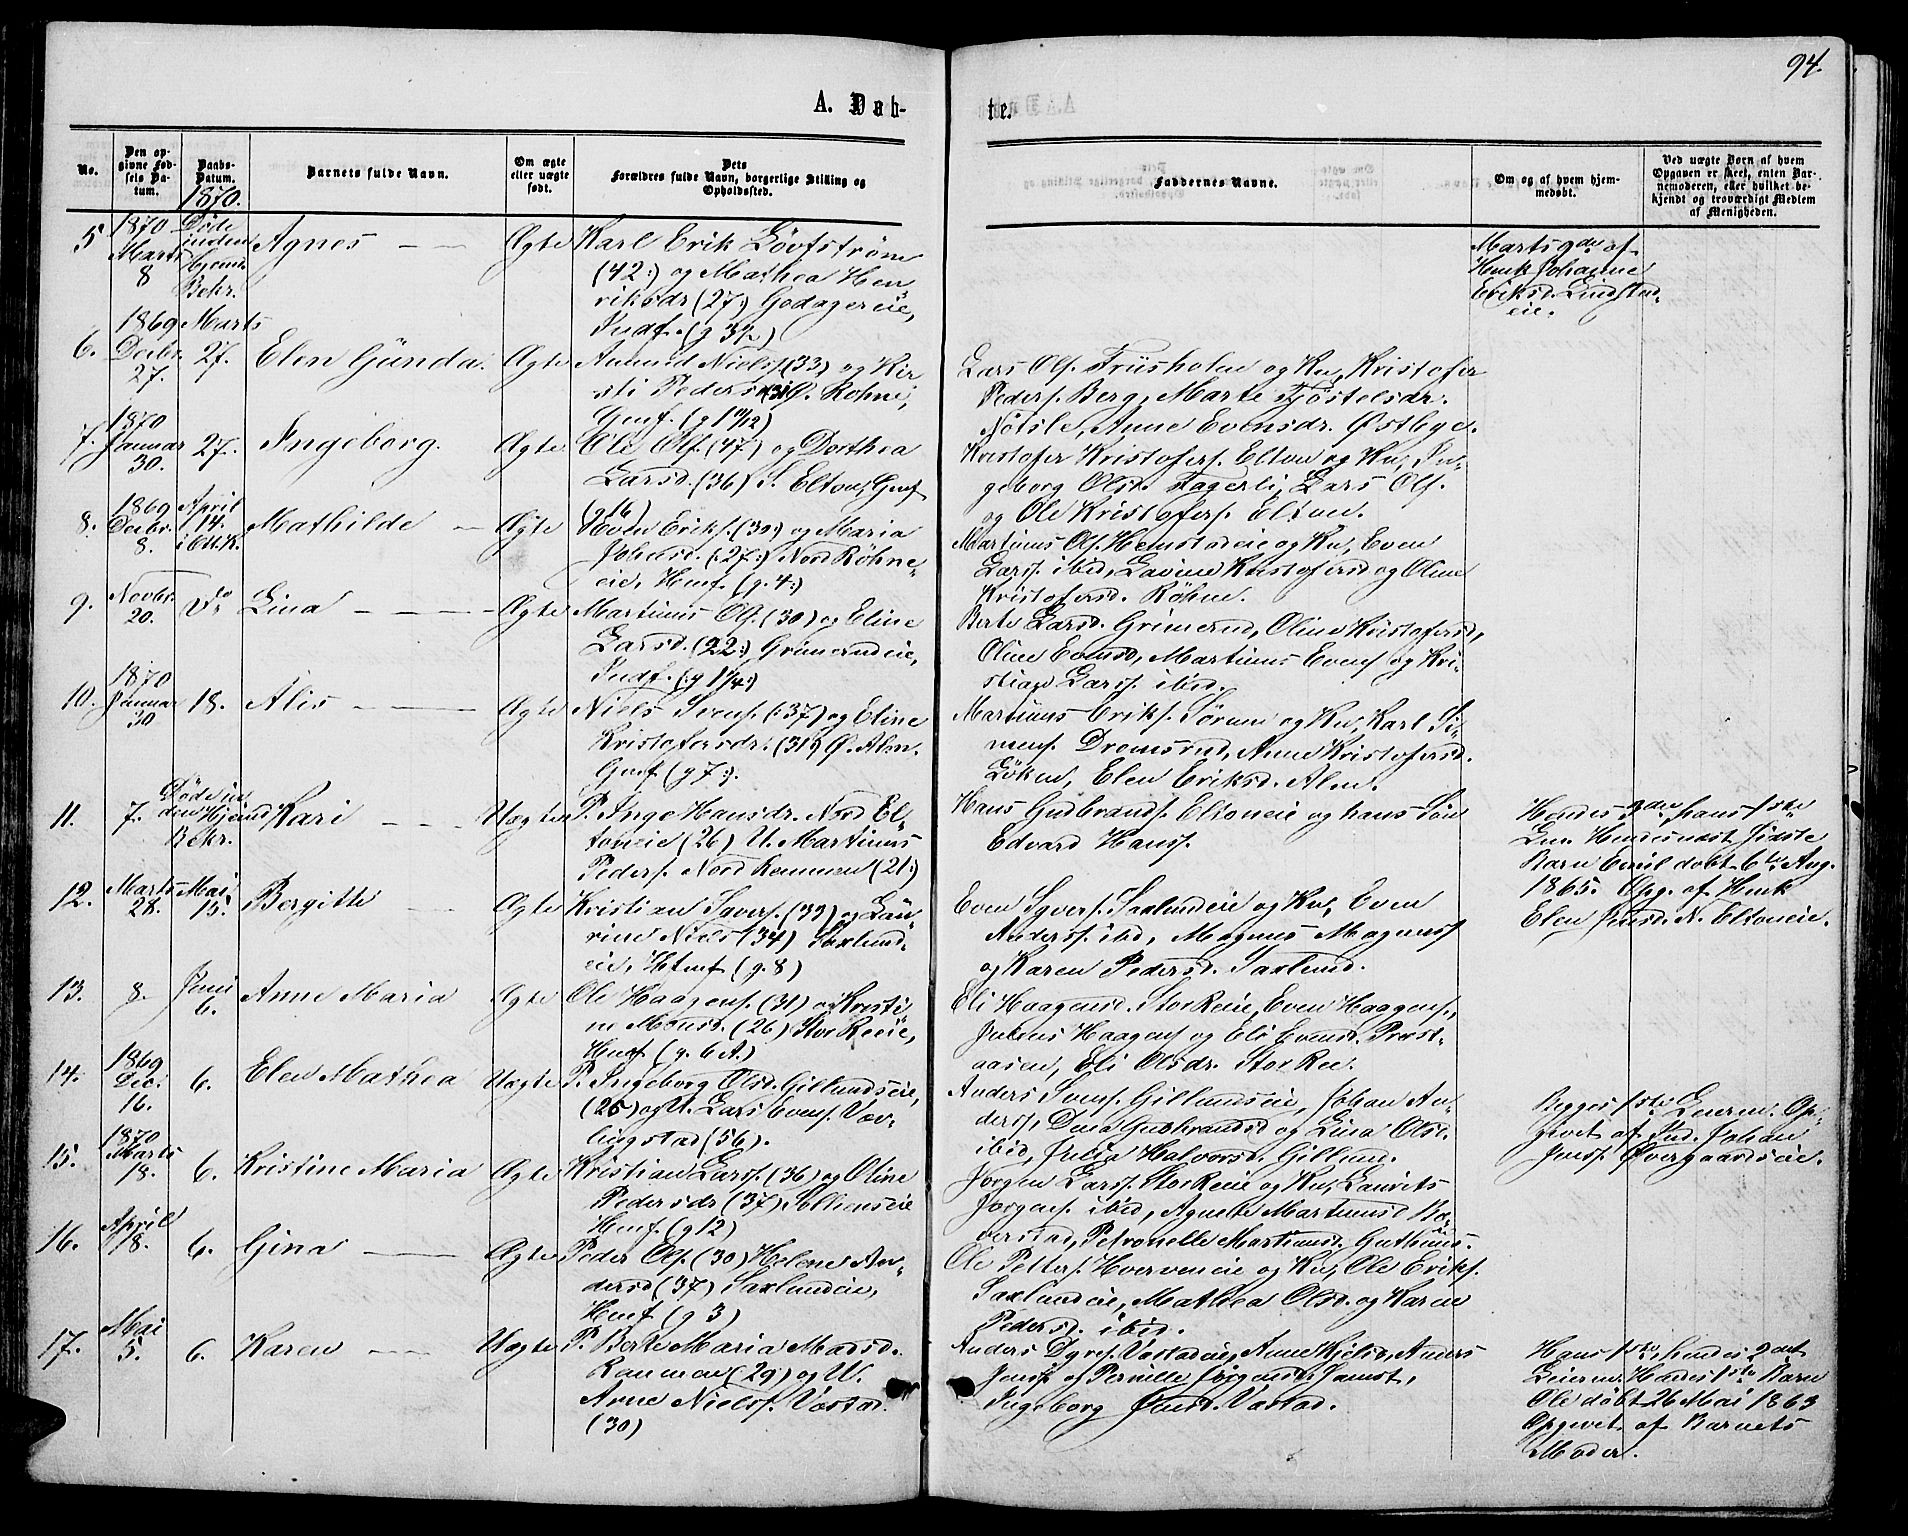 94.
A. Døb-
te.
No.
Den op-
givne Fød-
sels Da-
tum.
Daabs-
Datum.
1870.
Barnets fulde Navn.
Om ægte
eller uægte
født.
Dets
Forældres fulde Navn, borgerlige Stilling og
Opholdssted.
Faddernes Navne.
Om og af hvem hjem-
medøbt.
Ved uægte Børn af hvem
Opgaven er skeet, enten Bar-
nemoderen, eller hvilket be-
kjendt og troværdigt Medlem
af Menigheden.
5
1870
Marts
8
Døde
inden
Hjemd.
Bekr.
Agnes
Ægte
Karl Erik Løvfstrøm
(42:) og Mathea Hen-
riksdr (27:) Godagereie,
Indf. (g 3
Marts 9de af
Hmk Johanne
Eriksd. Lindstad-
eie.
6.
1869
Decbr.
27.
Marts
27.
Elen Gunda.
Ægte
Amund Nielsf (33) og Kir-
sti Pedersd (31) Ø. Rohne,
Gmf. (g 11/12)
Lars Olf. Friisholm og Ku, Kristofer
Pedersf. Berg, Marte Kjøstelsdr.
Njøtsle, Anne Evensdr. Østbye.
7.
1870
Januar
30.
27.
Ingeborg.
Ægte
Ole Olf. (47) og Dorthea
Larsd. (36) S. Elton, Gmf
(g 16)
Kristofer Kristofersf. Elton og Ku, In-
geborg Olsd. Fagerli, Lars Olf.
og Ole Kristofersf. Elton.
8.
1869
Decbr.
8.
April
14.
i Ott.K.
Mathilde
Ægte
Even Eriksf. (30:) og Maria
Johnsd. (:27:) Nord Røhne-
eie, Hmf. (g. 4:)
Martinus Olf. Hemstadeie og Ku, Even
Larsf. ibid, Lavine Kristofersd og Oline
Kristofersd. Røhne.
9.
Novbr.
20.
Do
Lina
Ægte
Martinus Olf. (30) og Eline
Larsd. (22:) Grimerudeie,
Indf. (:g 1 1/4:)
Berte Larsd. Grimerud, Oline Kristofersd,
Oline Evensd, Martinus Evensf og Kri-
stian Larsf. ibid.
10.
1870
Januar
30
18.
Alis
Ægte
Niels Svensf. (:37) og Eline
Kristofersdr. (31) Ø. Alm.
Gmf (g 7:).
Martinus Eriksf. Sørum og Ku, Karl Si-
mensf. Dromsrud, Anne Kristofersd.
Løken, Elen Eriksd. Alm.
11.
7.
Døde in-
den Hjemd
Bekr.
Kari
Uægte
P. Inge Hansdr. Nord El-
toneie (26) U. Martinus
Pedersf. Nord Rommen (21:)
Hans Gudbrandsf. Eltoneie og hans Søn
Edvard Hansf.
Hendes 3die, hans 1ste
Leier. Hendes næst sidste
Barn Emil døbt 6te Aug.
1865. Opg. af Hmk
Elen Jensd. N. Eltoneie.
12.
Marts
28.
Mai
15.
Bergitte
Ægte
Kristian Syversf. (39) og Lau-
rine Niels (34) Saxlund-
eie, Hmf (g. 8)
Even Syversf. Saxlundeie og Ku, Even
Andersf. ibid, Magnus Magnusf
og Karen Pedersd. Saxlund.
13.
8.
Juni
6.
Anne Maria
Ægte
Ole Haagensf. (31) og Kristi-
ne Monsd. (26) Stor Reeie,
Hmf. (g. 6 A.)
Eli Haagensd. Stor Reeie, Even Haagensf.,
Julius Haagensf og Eli Evensd. Prest-
aasen, Eli Olsdr. Stor Ree.
14.
1869
Dec.
16.
6.
Elen Mathea
Uægte
P. Ingeborg Olsd. Gillundseie,
(25) og U. Lars Evensf. Vær-
lingstad (56).
Anders Svensf. Gillundseie, Johan An-
dersf, Dina Gudbrandsd og Lina Olsd.
ibid, Julia Halvorsd. Gillund.
Begges 1ste Leierm. Op-
givet af Ind. Johan
Jensf. Øvergaardseie.
15.
1870
Marts
18.
6.
Kristine Maria
Ægte
Kristian Larsf. (36) og Oline
Pedersdr (37) Solliemseie
Hmf. (g 12)
Jørgen Larsf. Stor Reeie og Ku, Laurits
Jørgensf. ibid, Agnete Martinusd Bæ-
verstad, Petronelle Martinusd. Guthuus.
16.
April
18.
6.
Gina
Ægte
Peder Olf. (30) Helene An-
dersd (37) Saxlundeie,
Hmf. (g 3)
Ole Pettersf. Hverveneie og Ku, Ole Eriksf.
Saxlundeie, Mathea Olsd. og Karen
Pedersd. ibid.
17.
Mai
5.
6.
Karen
Uægte
P. Berte Maria Madsd.
Rommen (29) og U.
Arne Nielsf. Væstad.
(30)
Anders Dyresf. Væstadeie, Anne Hjelm, Anders
Jensf af Pernille Jørgensd. Jemst,
Ingeborg Jensd. Væstad.
Hans 1ste, hendes 2det
Leierm. Hendes 1ste Barn
Ole døbt 26 Mai 1863
Opgivet af Barnets
Moder.